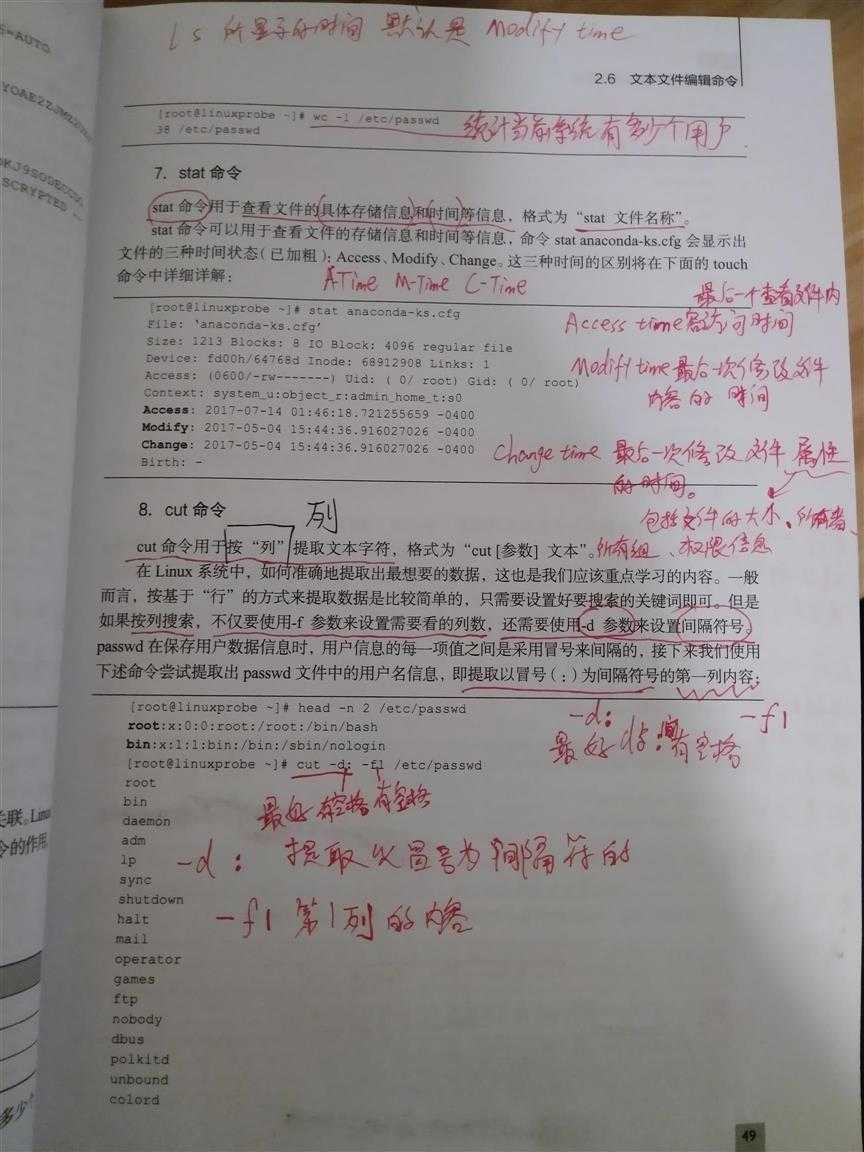 ls 所显示的时间 默认是 Modify time
=AUTO
YOAE2ZJMZ
2.6 文本文件编辑命令
[root@linuxprobe ~]# wc -l /etc/passwd
38 /etc/passwd
统计当前系统有多少个用户
SCRYPTED
7. stat 命令
stat 命令用于查看文件的具体存储信息和时间等信息，格式为“stat 文件名称”。
stat 命令可以用于查看文件的存储信息和时间等信息，命令 stat anaconda-ks.cfg 会显示出
文件的三种时间状态（已加粗）：Access、Modify、Change。这三种时间的区别将在下面的 touch
命令中详细详解：
A-Time M-Time C-Time
[root@linuxprobe ~]# stat anaconda-ks.cfg
File: ‘anaconda-ks.cfg’
Size: 1213 Blocks: 8 IO Block: 4096 regular file
Device: fd00h/64768d Inode: 68912908 Links: 1
Access: (0600/-rw-------) Uid: ( 0/ root) Gid: ( 0/ root)
Context: system_u:object_r:admin_home_t:s0
Access: 2017-07-14 01:46:18.721255659 -0400
Modify: 2017-05-04 15:44:36.916027026 -0400
Change: 2017-05-04 15:44:36.916027026 -0400
Birth: -
最后一个查看文件内
Access time 容访问时间
Modify time 最后一次修改文件
内容的时间
Change time 最后一次修改文件属性
的时间。
包括文件的大小、所有者、
所有组、权限信息
8. cut 命令
列
cut 命令用于按“列”提取文本字符，格式为“cut [参数] 文本”。
在 Linux 系统中，如何准确地提取出最想要的数据，这也是我们应该重点学习的内容。一般
而言，按基于“行”的方式来提取数据是比较简单的，只需要设置好要搜索的关键词即可。但是
如果按列搜索，不仅要使用-f 参数来设置需要看的列数，还需要使用-d 参数来设置间隔符号。
passwd 在保存用户数据信息时，用户信息的每一项值之间是采用冒号来间隔的，接下来我们使用
下述命令尝试提取出 passwd 文件中的用户名信息，即提取以冒号（:）为间隔符号的第一列内容：
[root@linuxprobe ~]# head -n 2 /etc/passwd
root:x:0:0:root:/root:/bin/bash
bin:x:1:1:bin:/bin:/sbin/nologin
[root@linuxprobe ~]# cut -d: -f1 /etc/passwd
-d: -f1
最好 d与: 有空格
最好有空格 有空格
root
bin
daemon
adm
lp
sync
shutdown
halt
mail
operator
games
ftp
nobody
dbus
polkitd
unbound
colord
-d : 提取以冒号为间隔符的
-f1 第1列的内容
关联。Linu
令的作用
多少个
49